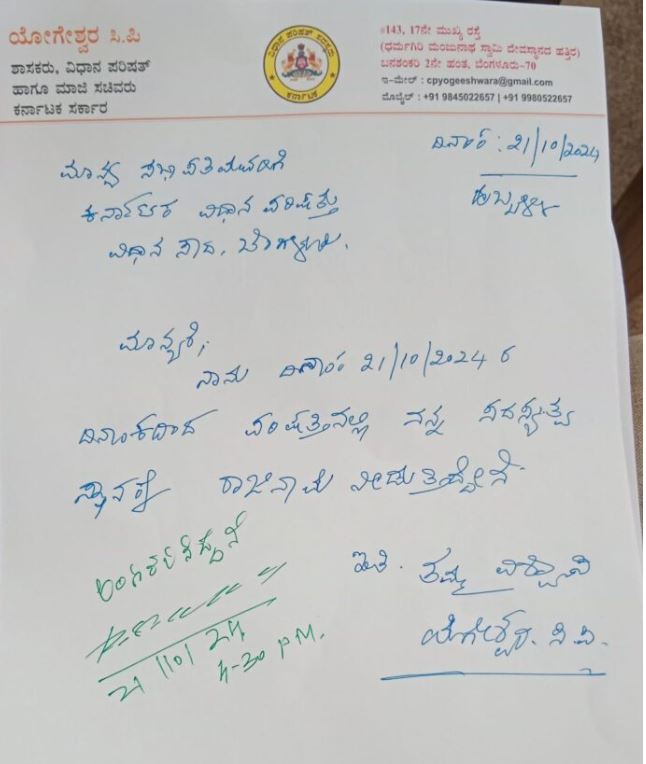 ಯೋಗೇಶ್ವರ ಸಿ.ಪಿ
ಶಾಸಕರು, ವಿಧಾನ ಪರಿಷತ್
ಹಾಗೂ ಮಾಜಿ ಸಚಿವರು
ಕರ್ನಾಟಕ ಸರ್ಕಾರ
ವಿಧಾನ ಪರಿಷತ್ ಸದಸ್ಯರು
ಕರ್ನಾಟಕ
#143, 17ನೇ ಮುಖ್ಯ ರಸ್ತೆ
(ಧರ್ಮಗಿರಿ ಮಂಜುನಾಥ ಸ್ವಾಮಿ ದೇವಸ್ಥಾನದ ಹತ್ತಿರ)
ಬನಶಂಕರಿ 2ನೇ ಹಂತ, ಬೆಂಗಳೂರು-70
ಇ-ಮೇಲ್ : cpyogeeshwara@gmail.com
ಮೊಬೈಲ್ : +91 9845022657 | +91 9980522657
ದಿನಾಂಕ : 21/10/2024
ಹುಬ್ಬಳ್ಳಿ
ಮಾನ್ಯ ಸಭಾಪತಿಯವರಿಗೆ
ಕರ್ನಾಟಕ ವಿಧಾನ ಪರಿಷತ್ತು
ವಿಧಾನ ಸೌಧ, ಬೆಂಗಳೂರು.
ಮಾನ್ಯರೆ,
ನಾನು ದಿನಾಂಕ 21/10/2024 ರ
ದಿನಾಂಕದಿಂದ ಪರಿಷತ್ತಿನಲ್ಲಿ ನನ್ನ ಸದಸ್ಯತ್ವ
ಸ್ಥಾನಕ್ಕೆ ರಾಜಿನಾಮೆ ನೀಡುತ್ತಿದ್ದೇನೆ
ಇತಿ. ತಮ್ಮ ವಿಶ್ವಾಸಿ
ಯೋಗೇಶ್ವರ. ಸಿ.ಪಿ.
ಅಂಗೀಕರಿಸಿದ್ದೇನೆ
21/10/24
4-30 PM.